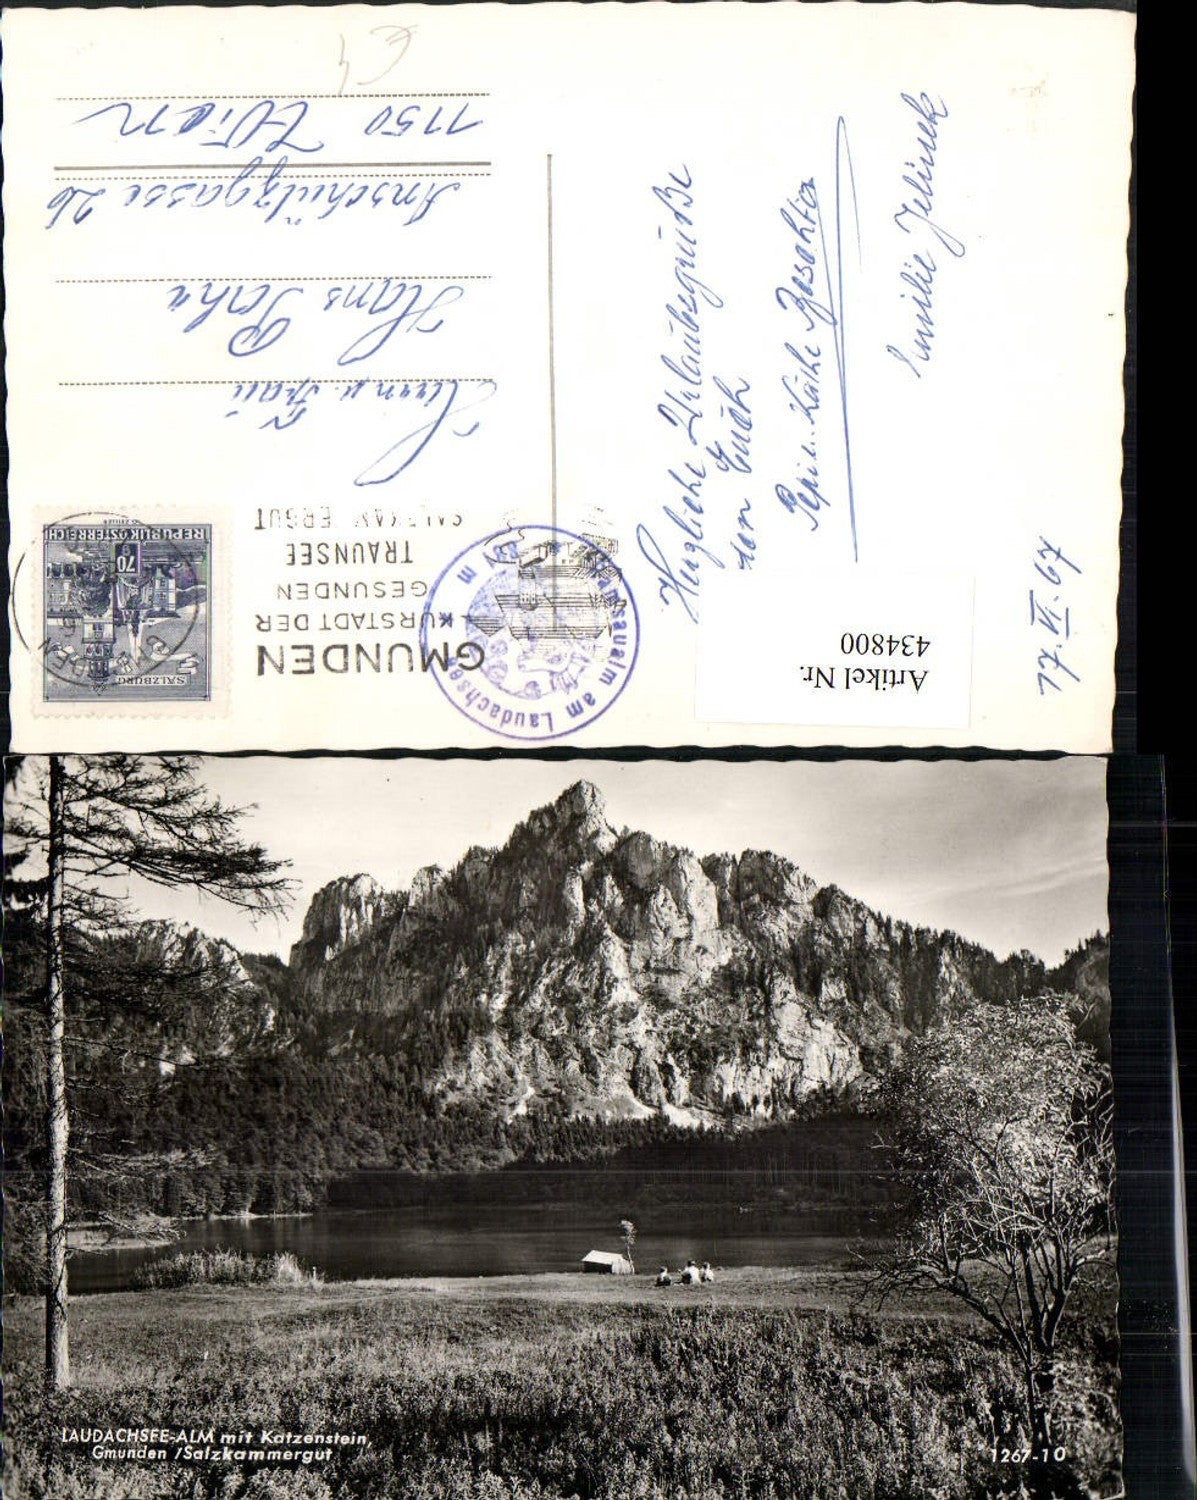 17.VI.67
Herzliche Urlaubsgrüße
von Euch
Pepi u. Käthe
Emilie Jelinek
Artikel Nr.
434800
am Laudachsee
GMUNDEN
KURSTADT DER
GESUNDEN
TRAUNSEE
SALZKAMMERGUT
SALZBURG
70
REPUBLIK ÖSTERREICH
Herrn u. Frau
Hans
Anschützgasse 26
1150 Wien
€4
LAUDACHSEE-ALM mit Katzenstein,
Gmunden /Salzkammergut
1267-10